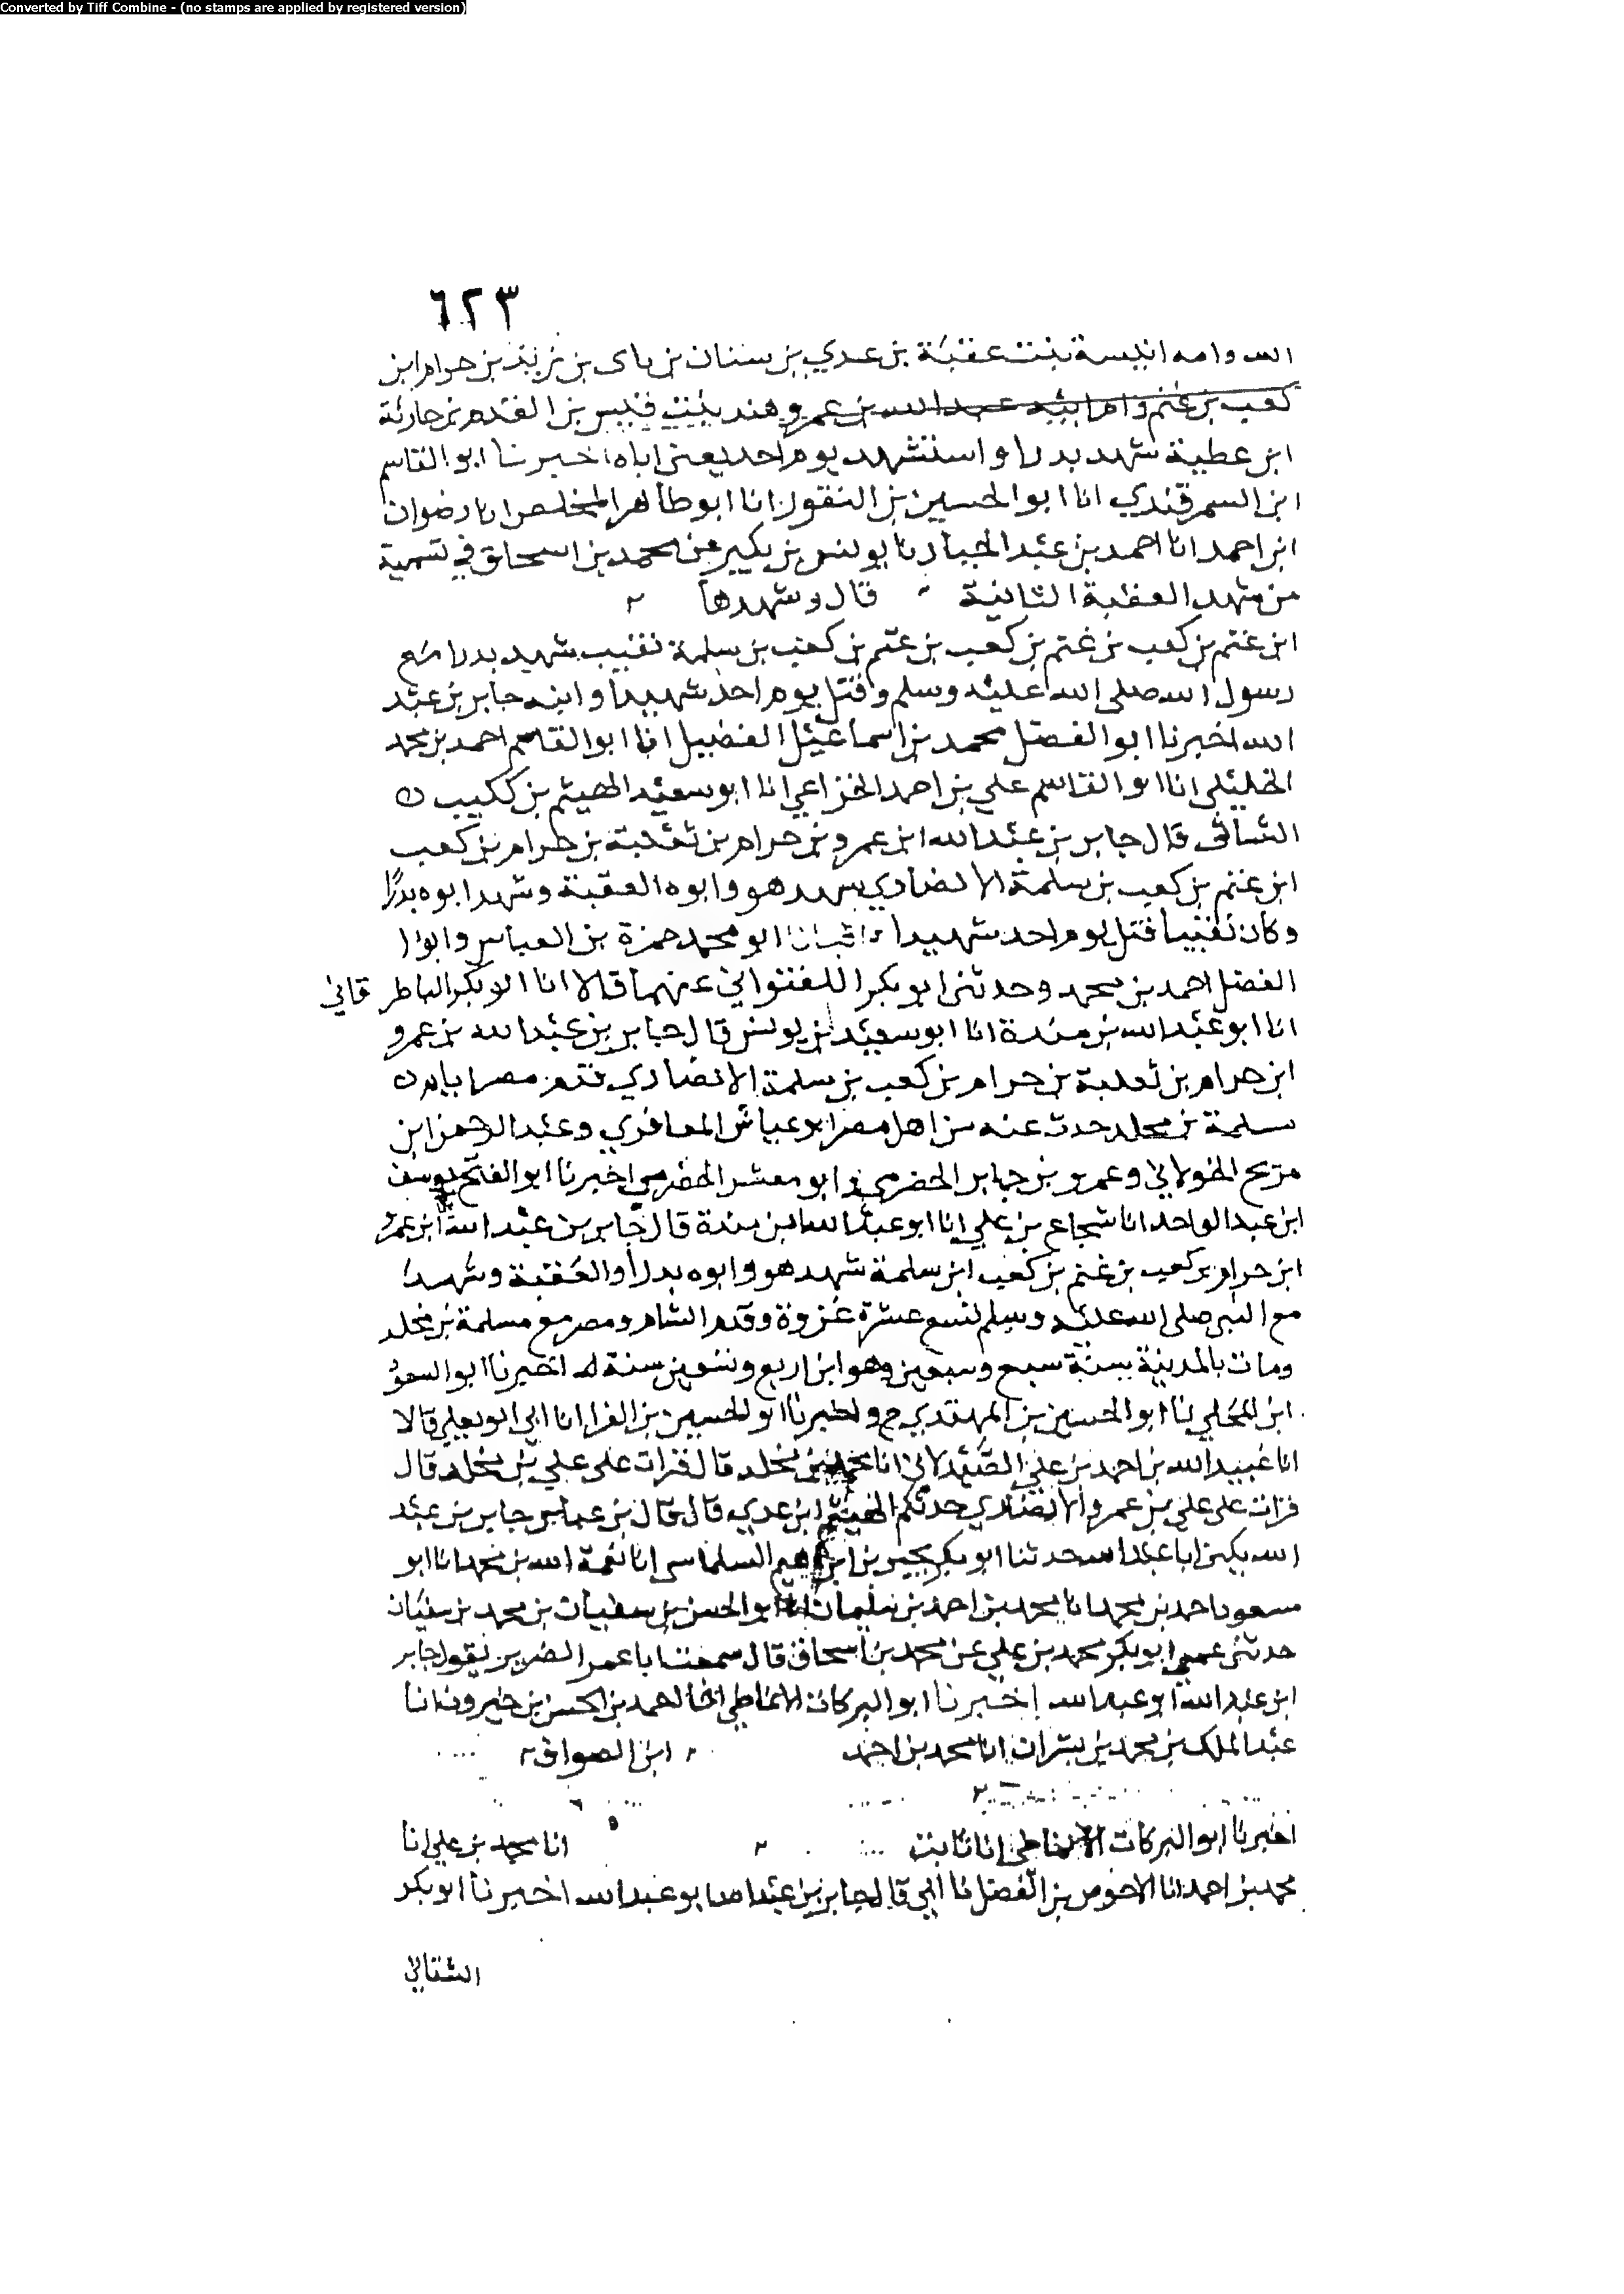 Converted by Tiff Combine - (no stamps are applied by registered version)
٦٢٣
الله وامه انيسة بنت عقبة بن عدي بن سنان بن ناى بن زيد بن حرام ابن
كعب بن غنم وام ابيه عبد الله بن عمرو هند بنت قيس بن القدم بن حارثة
ابن عطية شهد بدرا واستشهد يوم احد يعني اباه اخبرنا ابو القاسم
ابن السمرقندي انا ابو الحسين بن النقور انا ابو طاهر المخلص انا رضوان
ابن احمد انا احمد بن عبد الجبار نا يونس بن بكير عن محمد بن اسحاق في تسمية
من شهد العقبة الثانية قال وشهدها
ابن غنم بن كعب بن غنم بن كعب بن غنم بن كعب بن سلمة نقيب شهد بدرا مع
رسول الله صلى الله عليه وسلم وقتل يوم احد شهيدا وابنه جابر بن عبد
الله اخبرنا ابو الفضل محمد بن اسماعيل الفضيل انا ابو القاسم احمد بن محمد
الخليلي انا ابو القاسم علي بن احمد الخزاعي انا ابو سعيد الهيثم بن كليب
الشاشى قال جابر بن عبد الله ابن عمرو بن حرام بن ثعلبة بن حرام بن كعب
ابن غنم بن كعب بن سلمة الانصاري شهد هو وابوه العقبة وشهد ابوه بدرًا
وكان نقيبا قتل يوم احد شهيدا انا ابو محمد حمزة بن العباس وابو ا
الفضل احمد بن محمد وحدثني ابو بكر اللفتواني عنهما قالا انا ابو بكر الباطر قاني
انا ابو عبد الله بن مندة انا ابو سعيد بن يونس قال جابر بن عبد الله بن عمرو
ابن حرام بن ثعلبة بن حرام بن كعب بن سلمة الانصاري قدم مصر ايام
سلمة بن مخلد حدث عنه من اهل مصر ابو عياش المعافري وعبد الرحمن ابن
مريح الخولاني وعمرو بن جابر الحضرمي وابو معشر الحضرمي اخبرنا ابو الفتح يوسف
ابن عبد الواحد انا شجاع بن علي انا ابو عبد الله ابن مندة قال جابر بن عبد الله ابن عمرو
ابن حرام بن كعب بن غنم بن كعب ابن سلمة شهد هو وابوه بدرا والعقبة وشهد
مع النبى صلى الله عليه وسلم تسع عشرة غزوة وقدم الشام ومصر مع مسلمة بن مخلد
ومات بالمدينة سنة سبع وسبعين وهو ابن اربع وتسعين سنة اخبرنا ابو السعود
ابن المحلي نا ابو الحسين بن المهتدي ح واخبرنا ابو الحسين بن الفرا انا ابي ابو يعلى قالا
انا عبيد الله بن احمد بن علي الصيدلاني انا محمد بن مخلد قال قرات على علي بن مخلد قال
قرات على علي بن عمرو الانصاري حدثكم الهيثم ابن عدي قال قال بن عياش جابر بن عبد
الله يكنى ابا عبد الله حدثنا ابو بكر يحيى بن ابراهيم السلماسى انا نعمة الله بن محمد نا ابو
مسعود احمد بن محمد انا محمد بن احمد بن سليمان انا ابو الحسن بن سفيان بن محمد بن سفيان
حدثني عمي ابو بكر محمد بن علي عن محمد بن اسحاق قال سمعت ابا عمر الضرير يقول جابر
ابن عبد الله ابو عبد الله اخبرنا ابو البركات الانماطي انا احمد بن الحسن بن خيرون انا
عبد الملك بن محمد بن بشران انا محمد بن احمد ابن الصواف
اخبرنا ابو البركات الانماطي انا ثابت انا محمد بن علي انا
محمد بن احمد انا الاحوص بن الفضل نا ابي قال جابر بن عبد الله ابو عبد الله اخبرنا ابو بكر
الشقاني